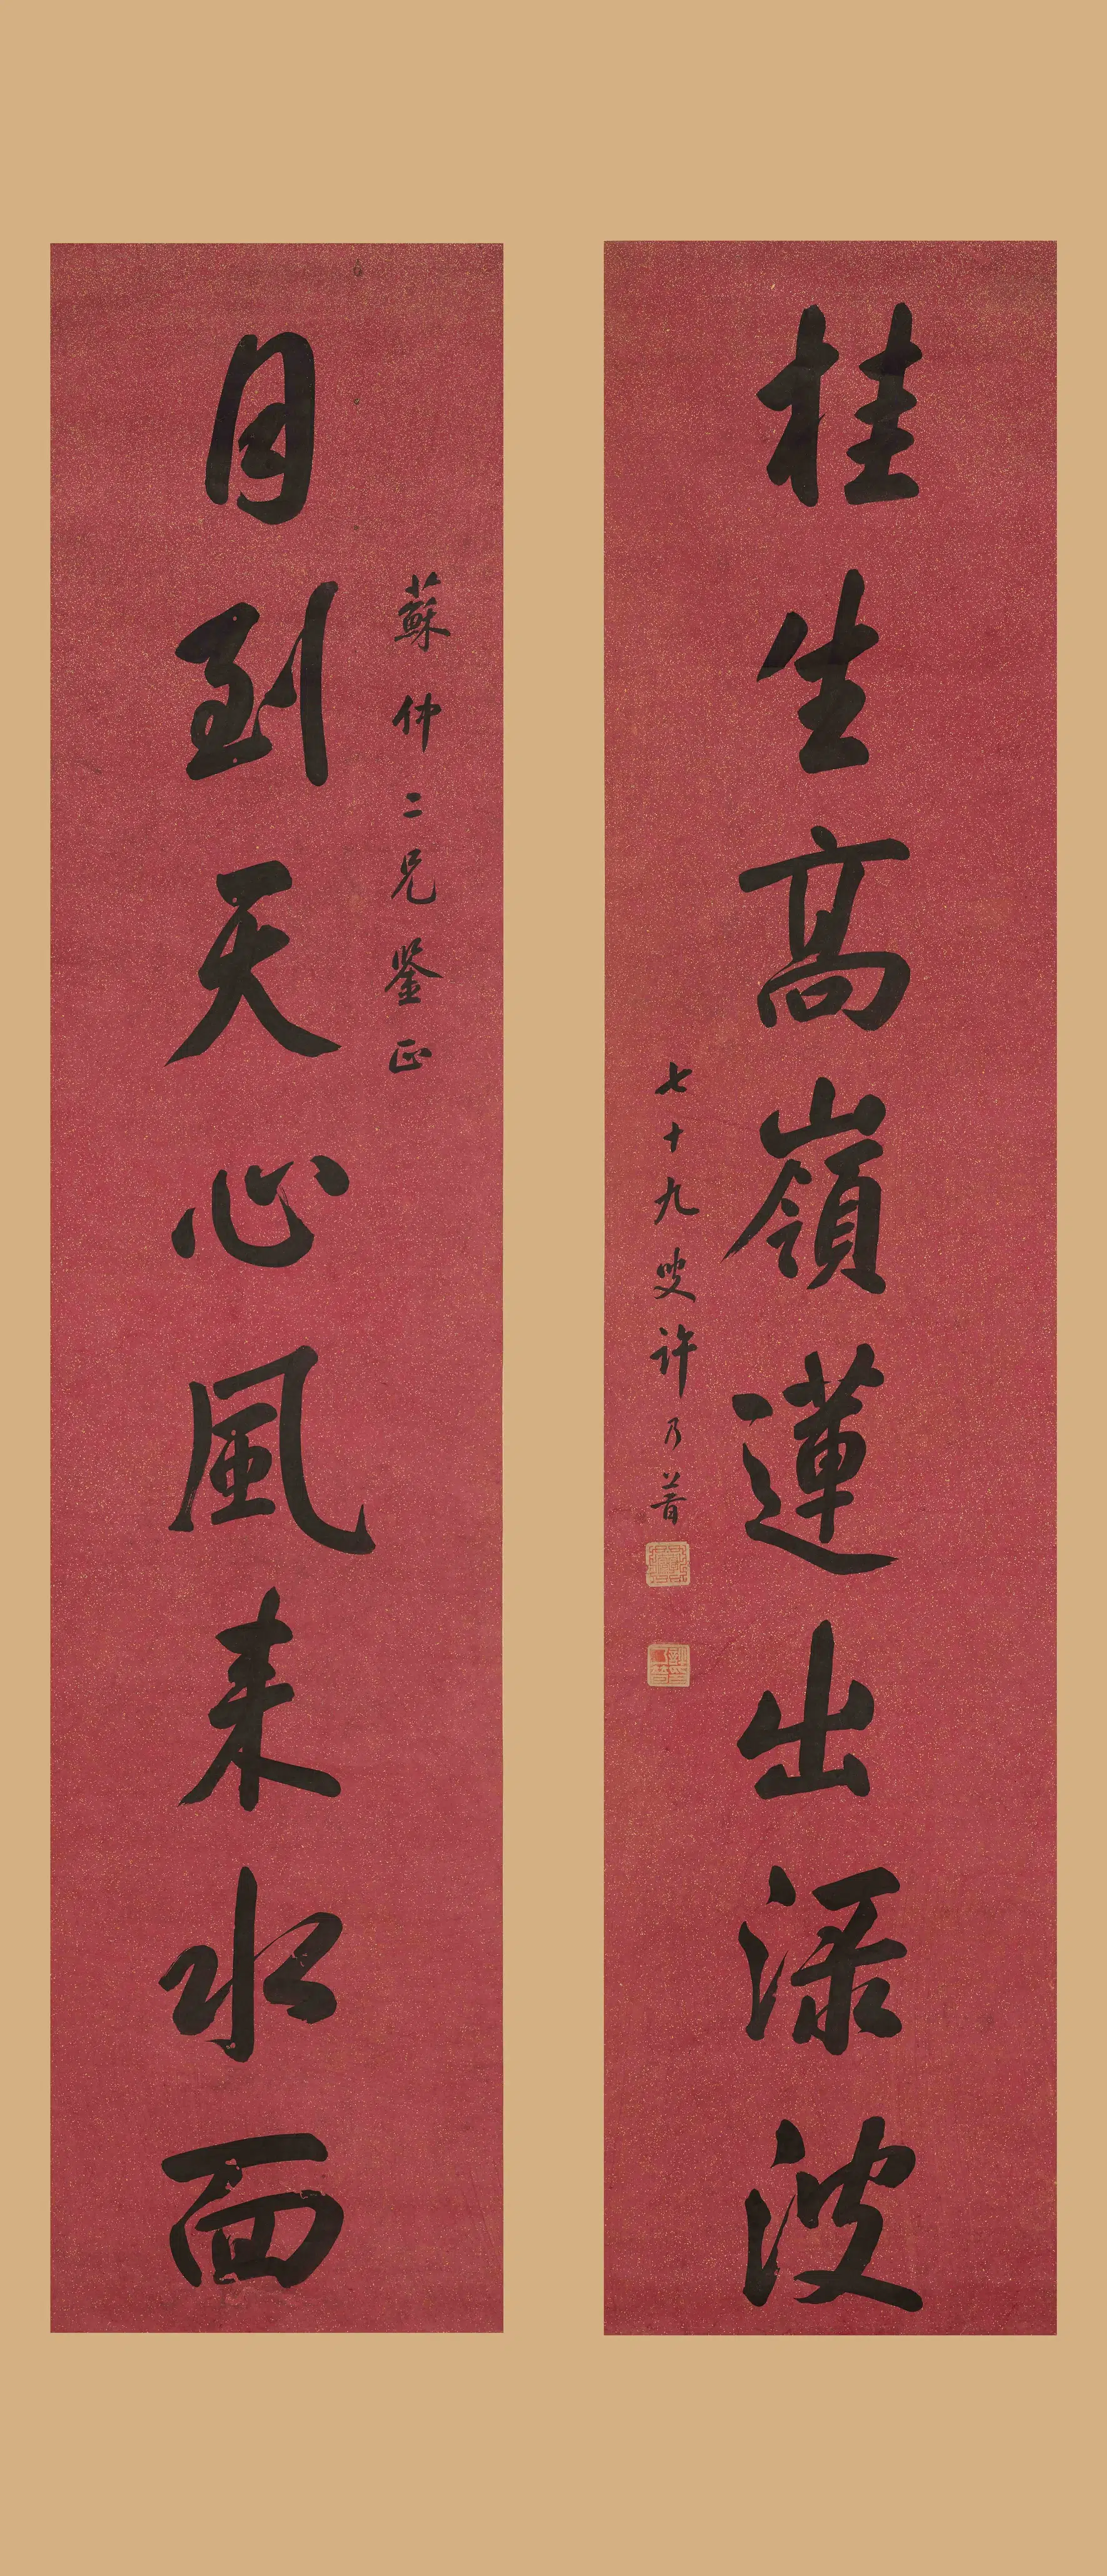 桂生高嶺蓮出渌波
七十九叟許乃普
蘇仲二兄鉴正
月到天心風来水面